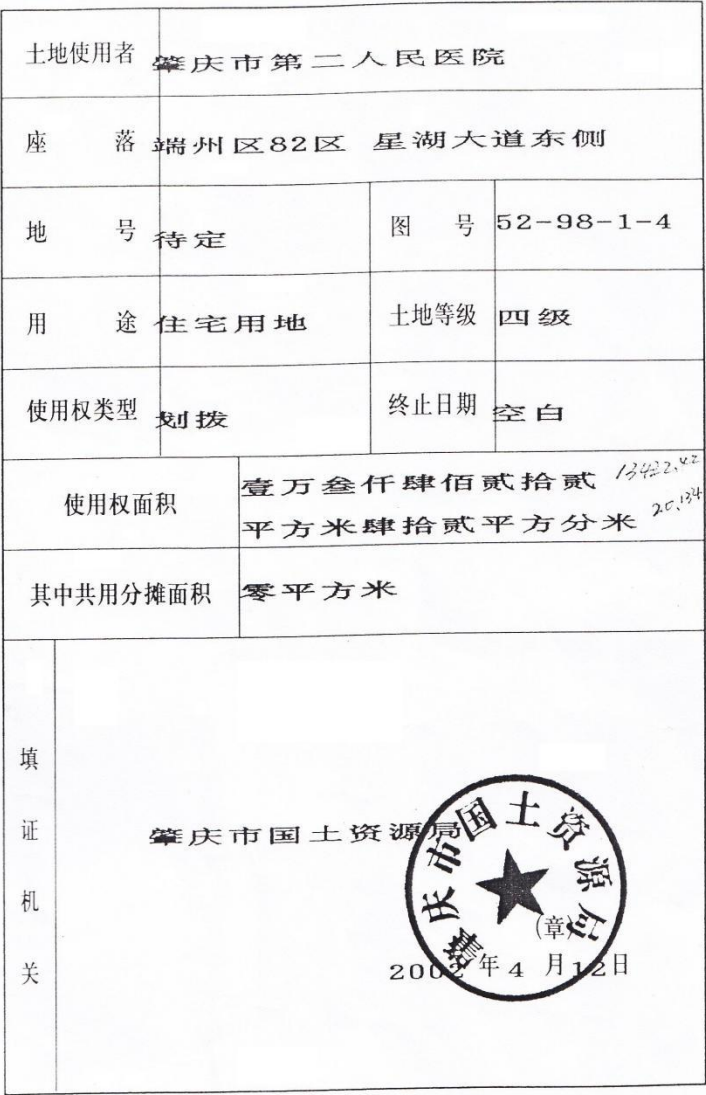 土地使用者 肇庆市第二人民医院
座 落 端州区82区 星湖大道东侧
地 号 待定 图 号 52-98-1-4
用 途 住宅用地 土地等级 四级
使用权类型 划拨 终止日期 空白
使用权面积 壹万叁仟肆佰贰拾贰 13422.42
平方米肆拾贰平方分米 20.134
其中共用分摊面积 零平方米
填证机关
肇庆市国土资源局
肇庆市国土资源局
(章)
2002年4月12日